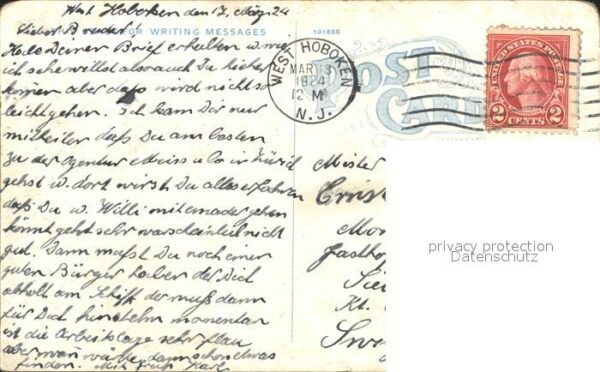 West Hoboken den 17 März 24
FOR WRITING MESSAGES
101886
Lieber Bruder!
Habe Deiner Brief erhalten u.
ich sehe willst also auch Du hieher
kommen aber dass wird nicht so
leicht gehen. Ich kann Dir nur
mitteilen dass Du am besten
zu der Agentur Meiss u Co in Zürich
gehst u. dort wirst Du alles erfahren
dass Du u. Willi miteinader gehen
könnt geht sehr warscheinlich nicht
gut. Dann musst Du noch einer
guten Bürger haben der Dich
abholt am Schiff der muss dann
für Dich hinstehn momentan
ist die Arbeitslage sehr flau
aber man würde dann schon etwas
finden. Mit Gruss Karl
WEST HOBOKEN
MAR 18
1924
12 M
N.J.
POST
CARD
UNITED STATES POSTAGE
2 CENTS 2
Mister
Ernst
Gasthof
Kt.
privacy protection
Datenschutz